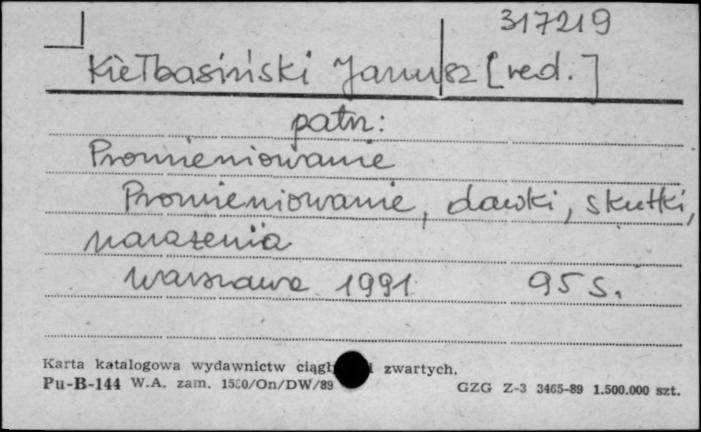 317219
Kiełbasiński Janusz [red.]
patrz:
Promieniowanie
Promieniowanie, dawki, skutki,
narażenia
Warszawa 1991 95 s.
Karta katalogowa wydawnictw zwartych.
Pu-B-144 W.A. zam. /On/DW/89 GZG Z-3 3465-89 1.500.000 szt.